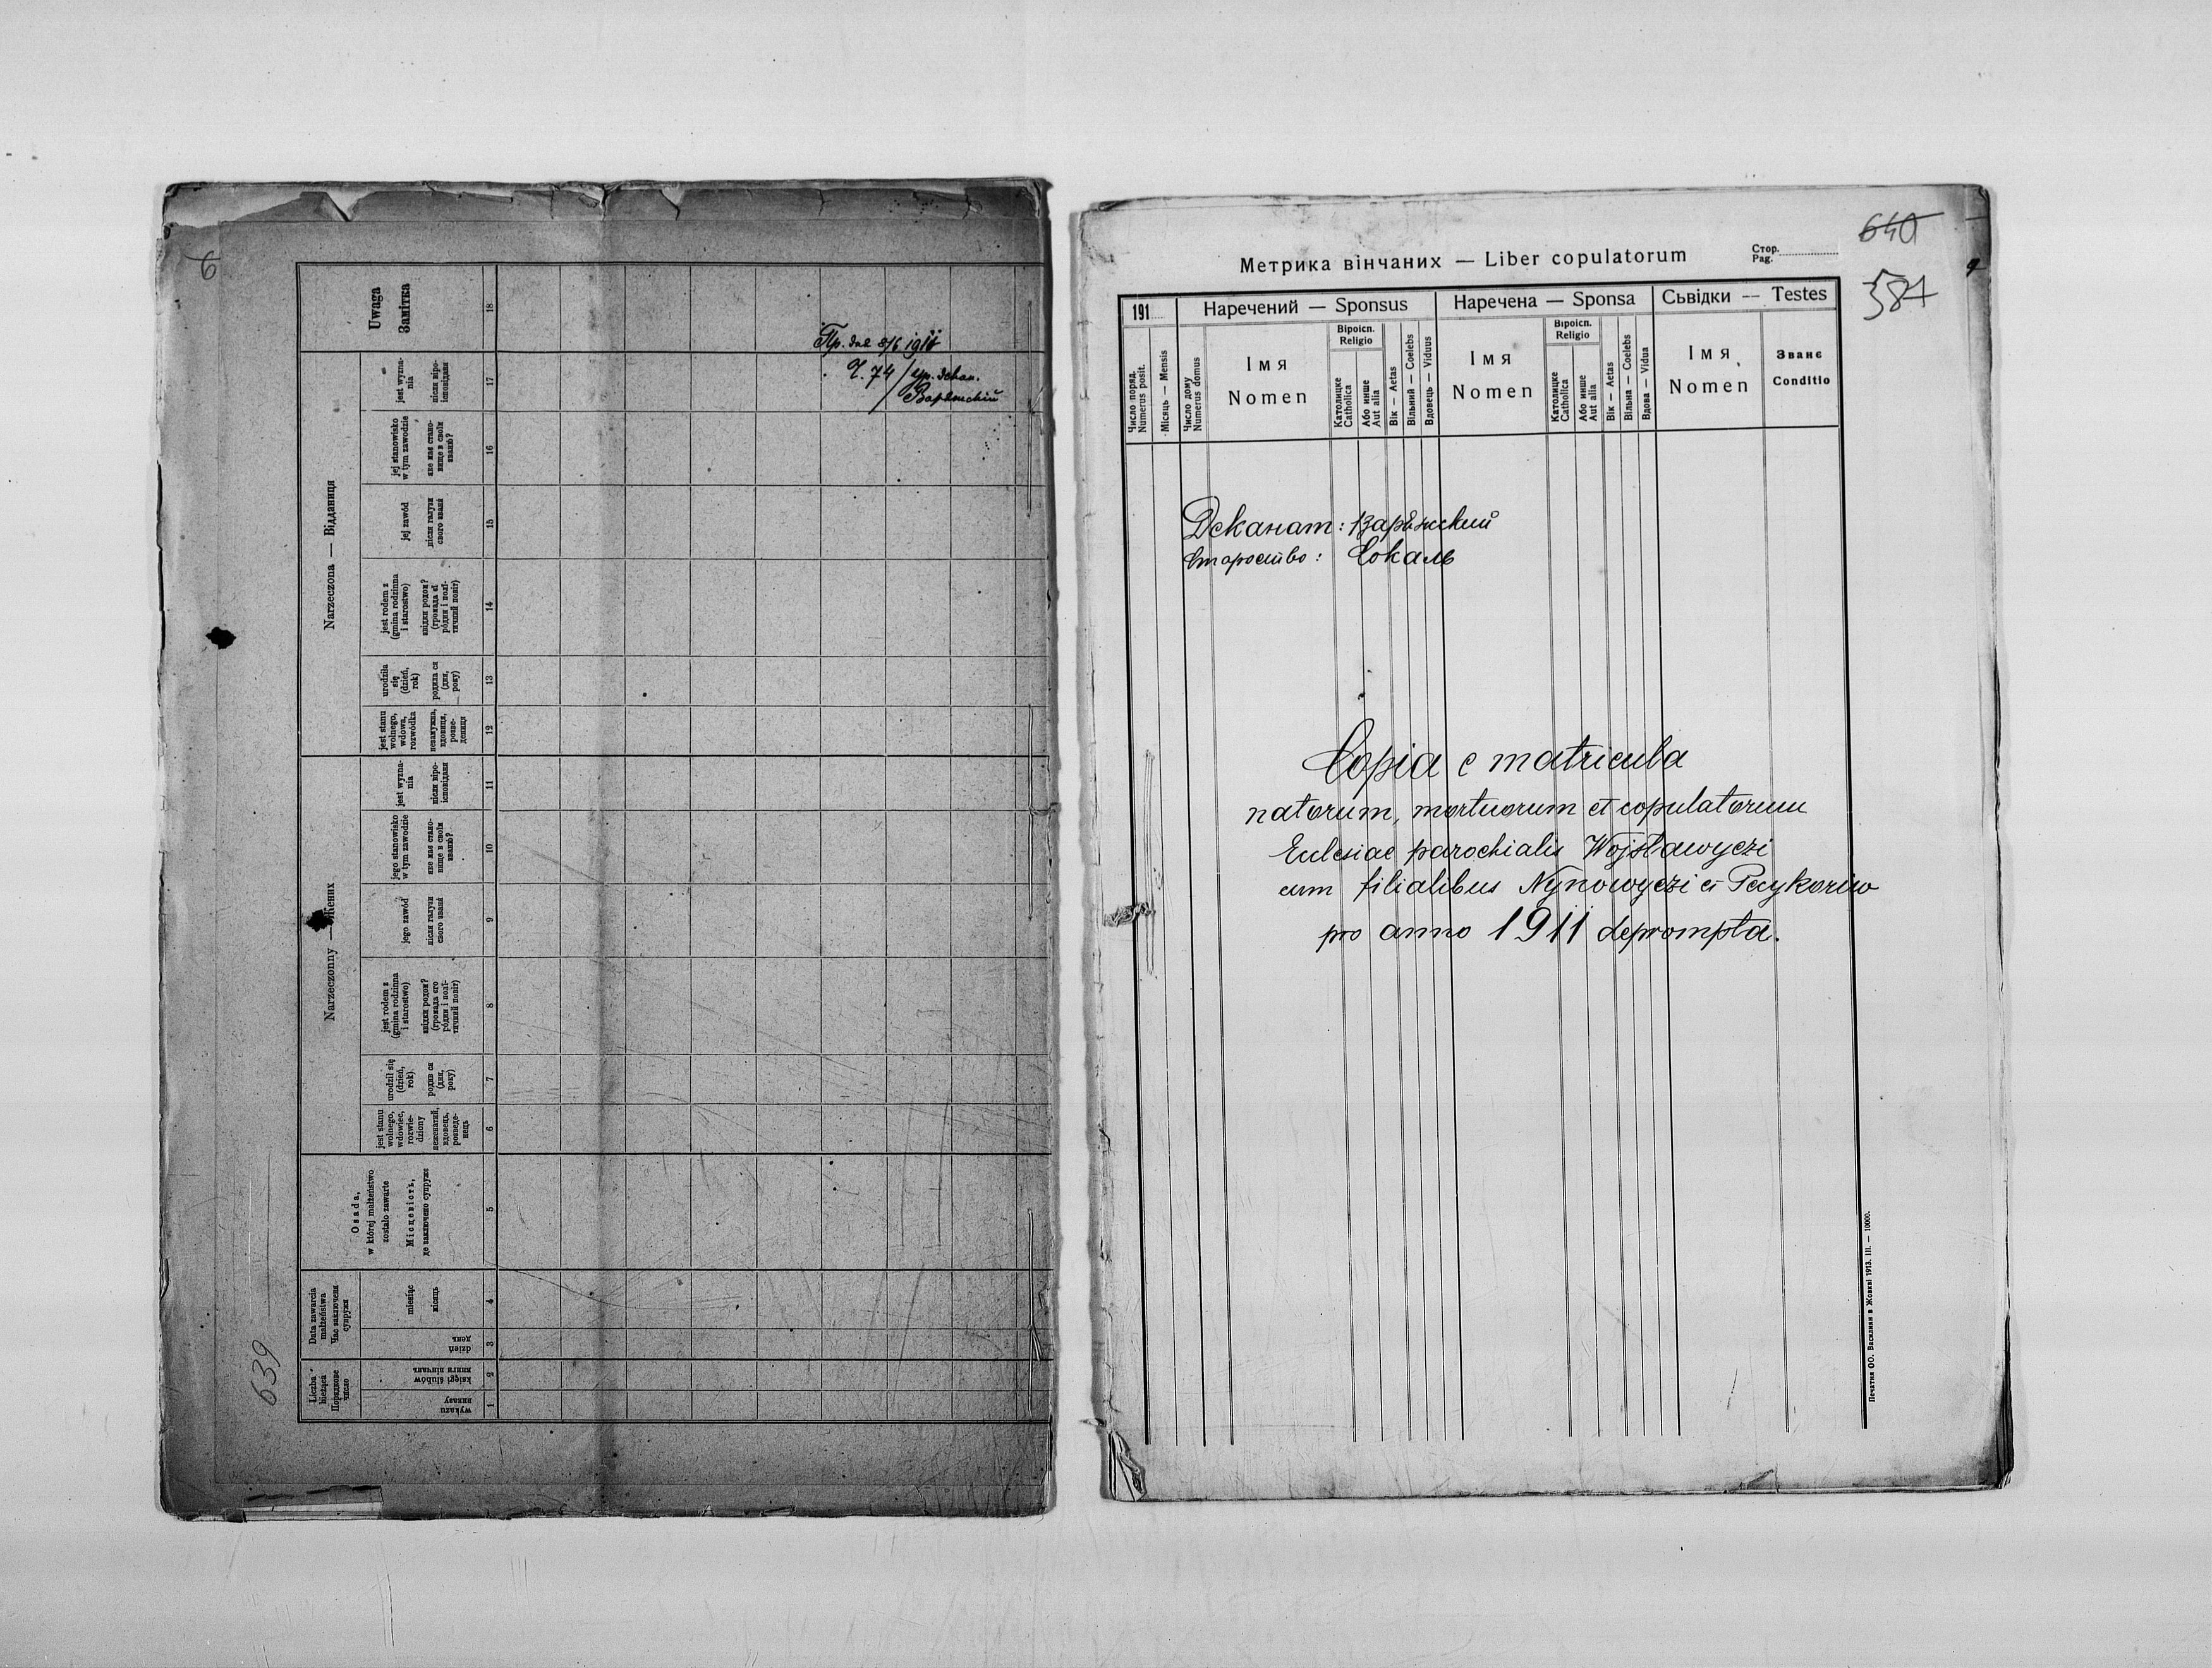 6
Uwaga
Замітка
18
Narzeczona — Відданиця
jest wyzna-
nia
після віро-
ісповіданя
17
jej stanowisko
w tym zawodzie
яке має стано-
вище в своїм
званю?
16
jej zawód
після галузи
свого званя
15
jest rodem z
(gmina rodzinna
i starostwo)
звідки родом?
(громада єї
родин і полї-
тичний повіт)
14
urodziła
się
(dzień,
rok)
родила ся
(дня,
року)
13
jest stanu
wolnego,
wdowa,
rozwódka
незамужна,
вдовиця,
розве-
дениця
12
Narzeczonny — Жених
jest wyzna-
nia
після віро-
ісповіданя
11
jego stanowisko
w tym zawodzie
яке має стано-
вище в своїм
званю?
10
jego zawód
після галузи
свого званя
9
jest rodem z
(gmina rodzinna
i starostwo)
звідки родом?
(громада єго
родин і полї-
тичний повіт)
8
urodził się
(dzień,
rok)
родив ся
(дня,
року)
7
jest stanu
wolnego,
wdowiec,
rozwie-
dziony
неженатий,
вдовець,
розведе-
нець
6
Osada,
w której małżeństwo
zostało zawarte
Місцевість,
де заключено супруже
5
Data zawarcia
małżeństwa
Час заключеня
супружа
miesiąc
місяць
4
dzień
день
3
Liczba
bieżąca
Порядкове
число
księgi ślubów
книги вінчань
2
wykazu
виказу
1
Ч. 74
639
640
587
Метрика вінчаних — Liber copulatorum
Стор.
Pag.
191
Наречений — Sponsus
Наречена — Sponsa
Сьвідки — Testes
Число поряд.
Numerus posit.
Місяць — Mensis
Число дому
Numerus domus
Імя
Nomen
Віроісп.
Religio
Католицке
Catholica
Або инше
Aut alia
Вік — Aetas
Вільний — Coelebs
Вдовець — Viduus
Імя
Nomen
Віроісп.
Religio
Католицке
Catholica
Або инше
Aut alia
Вік — Aetas
Вільна — Coelebs
Вдова — Vidua
Імя
Nomen
Званє
Conditio
Деканат: Варѣжский
Староство: Сокаль
Copia e matricula
natorum, mortuorum et copulatorum
Eclesiae parochialis Wojsławyczi
cum filialibus Nynowyczi et Perykoriw
pro anno 1911 deprompta.
Печатня ОО. Василиян в Жовкві 1913. III. — 10000.